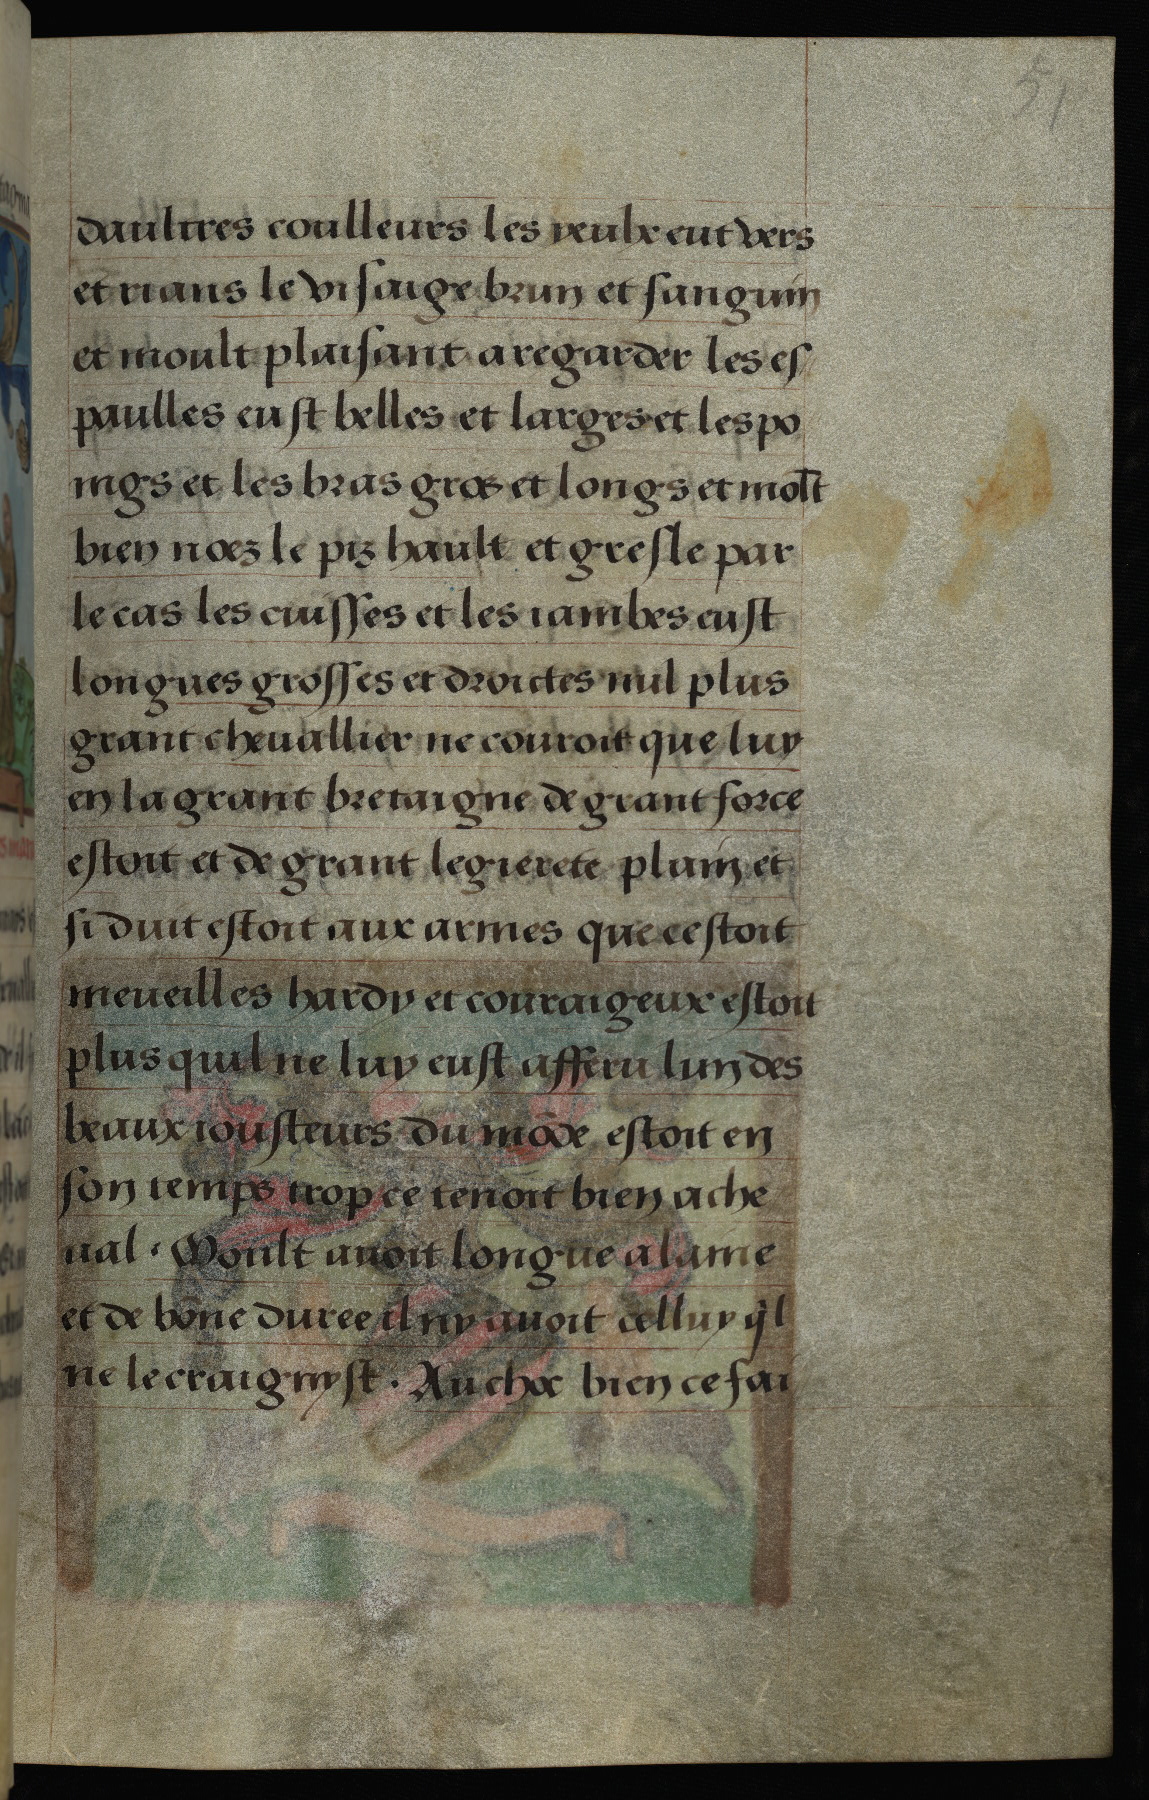 51
daultres coulleurs les yeulx eut vers
et rians le visaige brun et sanguin
et moult plaisant a regarder les es
paulles eust belles et larges et les po
ings et les bras gros et longs et molt
bien noez le piz hault et gresle par
le cas les cuisses et les iambes eust
longues grosses et droictes nul plus
grant cheuallier ne couroit que luy
en la grant bretaigne de grant force
estoit et de grant legierete plain et
si duit estoit aux armes que cestoit
meueilles hardy et couraigeux estoit
plus quil ne luy eust afferu lun des
beaux iousteurs du mōde estoit en
son temps trop ce tenoit bien a che
ual · Moult auoit longue alaine
et de bōne duree il ny auoit celluy q̄l
ne le craignyst · Au chox bien ce fai